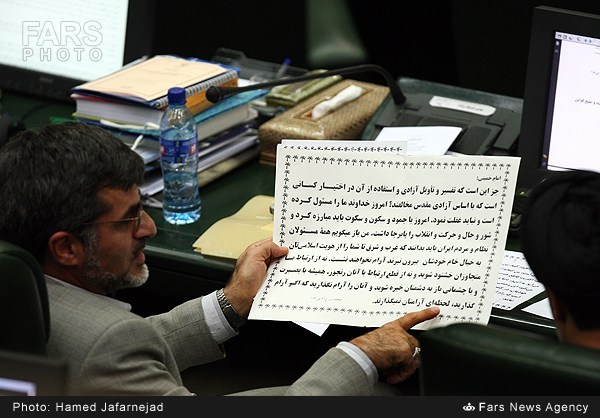 FARS
PHOTO
امام خمینی:
جز این است که تفسیر و تاویل آزادی و استفاده از آن در اختیار کسانی
است که با اساس آزادی مقدس مخالفتند! امروز خداوند ما را مسئول کرده
است و نباید غفلت نمود. امروز با جمود و سکون و سکوت باید مبارزه کرد و
شور و حال و حرکت و انقلاب را پابرجا داشت. من باز میگویم همهٔ مسئولان
نظام و مردم ایران باید بدانند که غرب و شرق تا شما را از هویت اسلامی‌تان
به خیال خام خودشان بیرون نبرند آرام نخواهند نشست. نه از ارتباط با
متجاوزان خشنود شوید و نه از قطع ارتباط با آنان رنجور، همیشه با بصیرت
و با چشمانی باز به دشمنان خیره شوید و آنان را آرام نگذارید که اگر آرام
گذارید، لحظه‌ای آرامتان نمیگذارند.
Photo: Hamed Jafarnejad
Fars News Agency